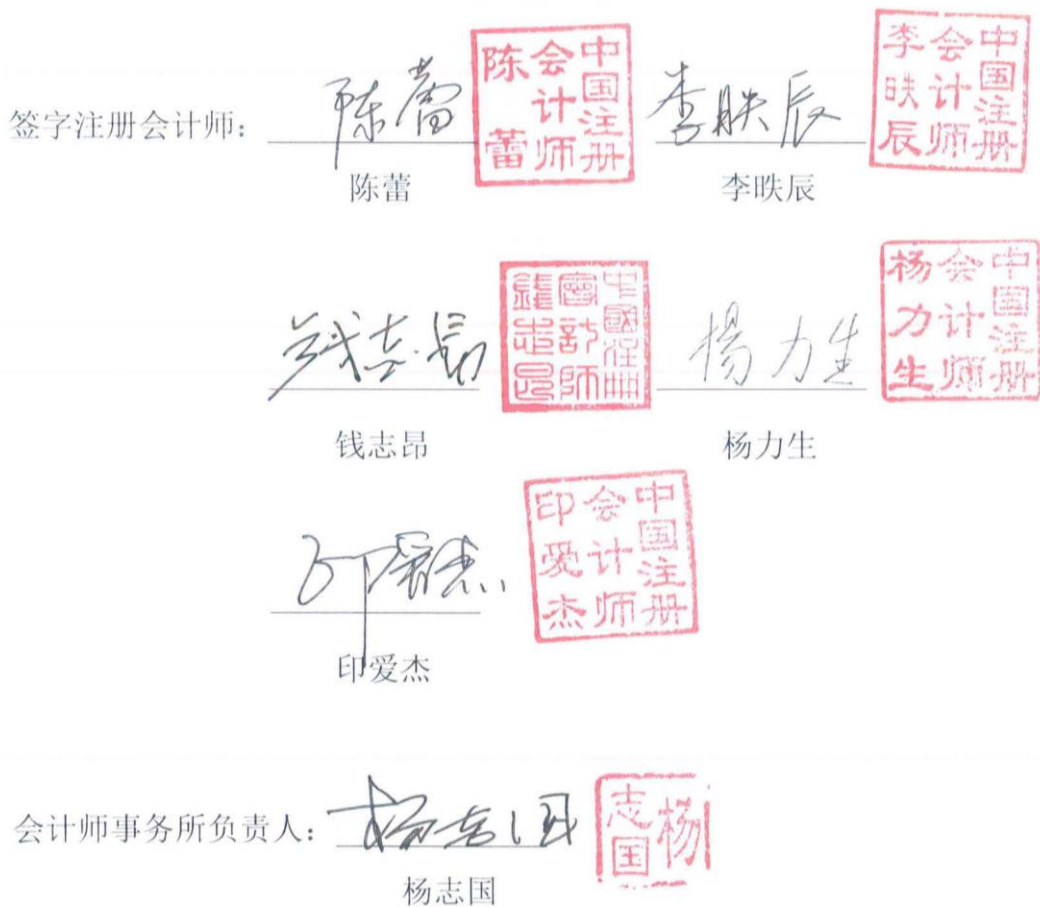 签字注册会计师： 陈蕾 中国注册会计师陈蕾 李昳辰 中国注册会计师李昳辰
陈蕾 李昳辰
钱志昂 中國注冊會計師錢志昂 楊力生 中国注册会计师杨力生
钱志昂 杨力生
印爱杰 中国注册会计师印爱杰
印爱杰
会计师事务所负责人： 杨志国 杨志国
杨志国